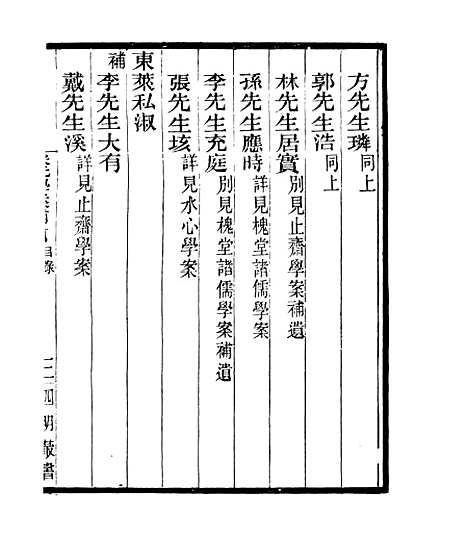 方先生璘同上
郭先生浩同上
林先生居實別見止齋學案補遺
孫先生應時詳見槐堂諸儒學案
李先生充庭別見槐堂諸儒學案補遺
張先生垓詳見水心學案
東萊私淑
補李先生大有
戴先生溪詳見止齋學案
目錄
四明叢書